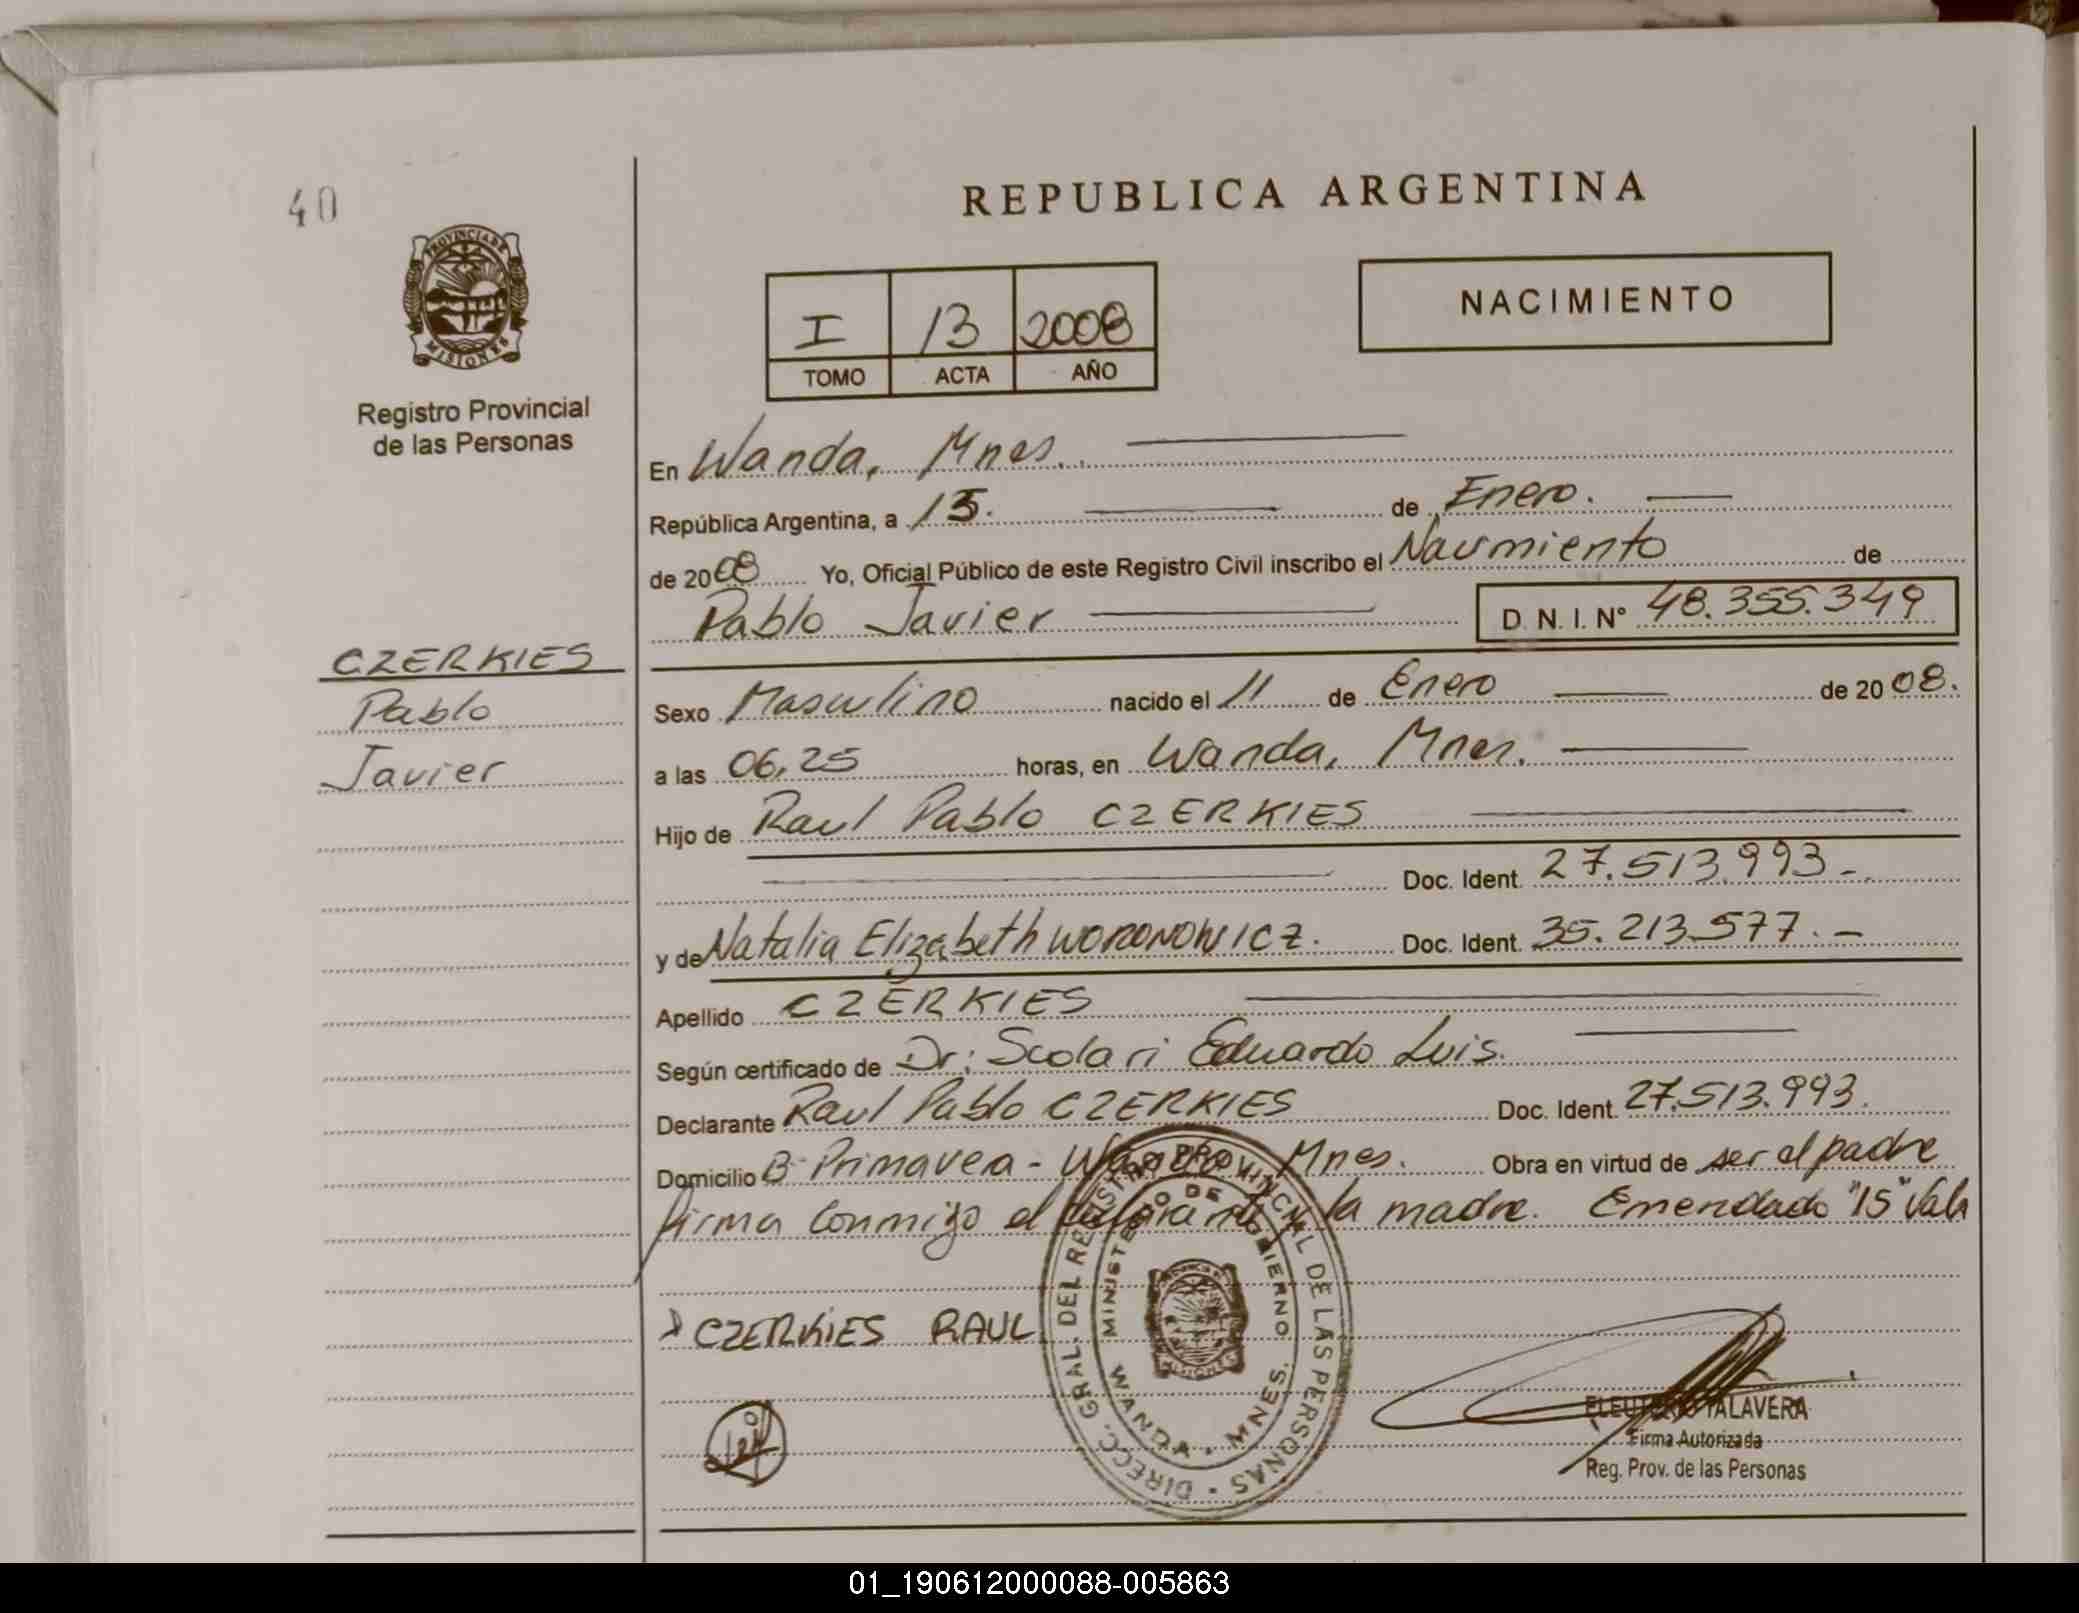 40
PROVINCIA DE
MISIONES
Registro Provincial
de las Personas
CZERKIES
Pablo
Javier
REPUBLICA ARGENTINA
I 13 2008
TOMO ACTA AÑO
NACIMIENTO
En Wanda, Mnes.
República Argentina, a 15. de Enero.
de 2008 Yo, Oficial Público de este Registro Civil inscribo el Nacimiento de
Pablo Javier D. N. I. N° 48.355.349
Sexo Masculino nacido el 11 de Enero de 2008.
a las 06,25 horas, en Wanda, Mnes.
Hijo de Raul Pablo CZERKIES
Doc. Ident. 27.513.993-
y de Natalia Elizabeth WORONOWICZ. Doc. Ident. 35.213.577.-
Apellido CZERKIES
Según certificado de Dr: Scolari Eduardo Luis.
Declarante Raul Pablo CZERKIES Doc. Ident. 27.513.993.
Domicilio B- Primavera - Wanda Mnes. Obra en virtud de ser el padre
firma conmigo el declarante y la madre. Emendado "15" Vale
CZERKIES RAUL
DIRECC. GRAL. DEL REGISTRO PROVINCIAL DE LAS PERSONAS
MINISTERIO DE GOBIERNO
WANDA - MNES.
MISIONES
ELEUTERIO TALAVERA
Firma Autorizada
Reg. Prov. de las Personas
01_190612000088-005863